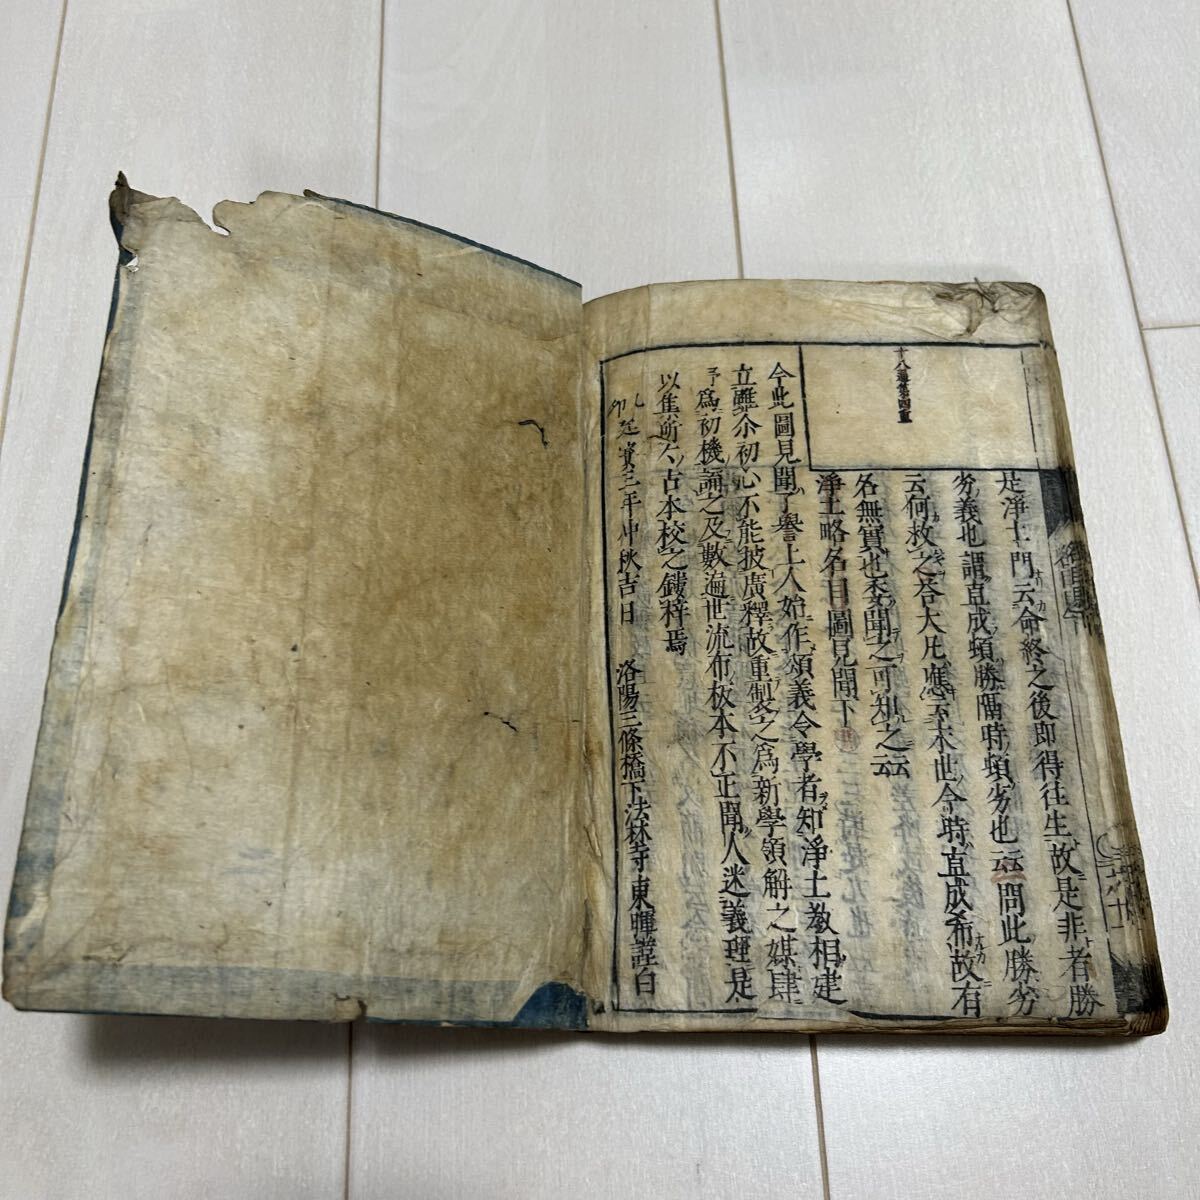 十八通第四重
是淨土門云命終之後即得往生故是非者勝
劣義也謂直成頓勝隔時頓劣也云云問此勝劣
云何救之答大凡應云末世今時直成希故有
名無實也委聞之可知之云云
淨土略名目圖見聞下
今此圖見聞了譽上人始作頌義令學者知淨土教相建
立雖介初心不能披廣釋故重製之爲新學領解之媒肆
予爲初機誦之及數遍世流布板本不正聞人迷義理是
以集所々古本校之鋟梓焉
延寶三年仲秋吉日 洛陽三條橋下法林寺東暉謹白